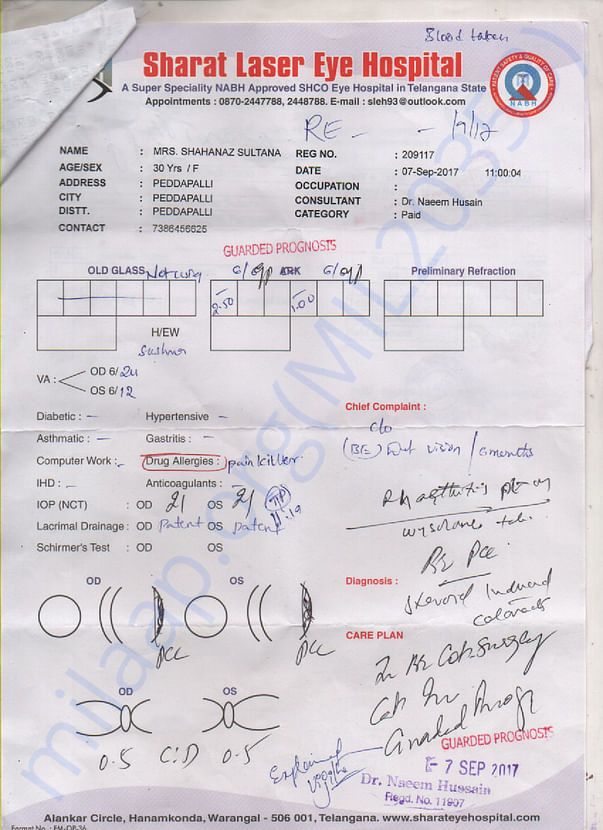 Blood taken
Sharat Laser Eye Hospital
A Super Speciality NABH Approved SHCO Eye Hospital in Telangana State
Appointments : 0870-2447788, 2448788. E-mail : sleh93@outlook.com
PATIENT SAFETY & QUALITY OF CARE
NABH
RE
NAME : MRS. SHAHANAZ SULTANA REG NO. : 209117
AGE/SEX : 30 Yrs / F DATE : 07-Sep-2017 11:00:04
ADDRESS : PEDDAPALLI OCCUPATION :
CITY : PEDDAPALLI CONSULTANT : Dr. Naeem Husain
DISTT. : PEDDAPALLI CATEGORY : Paid
CONTACT : 7386456625
GUARDED PROGNOSIS
OLD GLASS ARK Preliminary Refraction
2.50 1.00
H/EW
VA : OD 6/24
OS 6/12
Chief Complaint :
Diabetic : – Hypertensive –
c/o
Asthmatic : – Gastritis : –
(BE) vision / 6 months
Computer Work : - Drug Allergies : pain killer
IHD : – Anticoagulants : –
IOP (NCT) : OD 21 OS 21
wysolone tab.
Lacrimal Drainage : OD patent OS patent
Schirmer's Test : OD OS
BE PCC
Diagnosis :
Steroid Induced
OD OS
CARE PLAN
PCC PCC
Guarded
OD OS
GUARDED PROGNOSIS
0.5 C:D 0.5
Explained
- 7 SEP 2017
Dr. Naeem Hussain
Regd. No. 11907
Alankar Circle, Hanamkonda, Warangal - 506 001, Telangana. www.sharateyehospital.com
Format No. : FM-OP-36
milaap.org(MIL2035